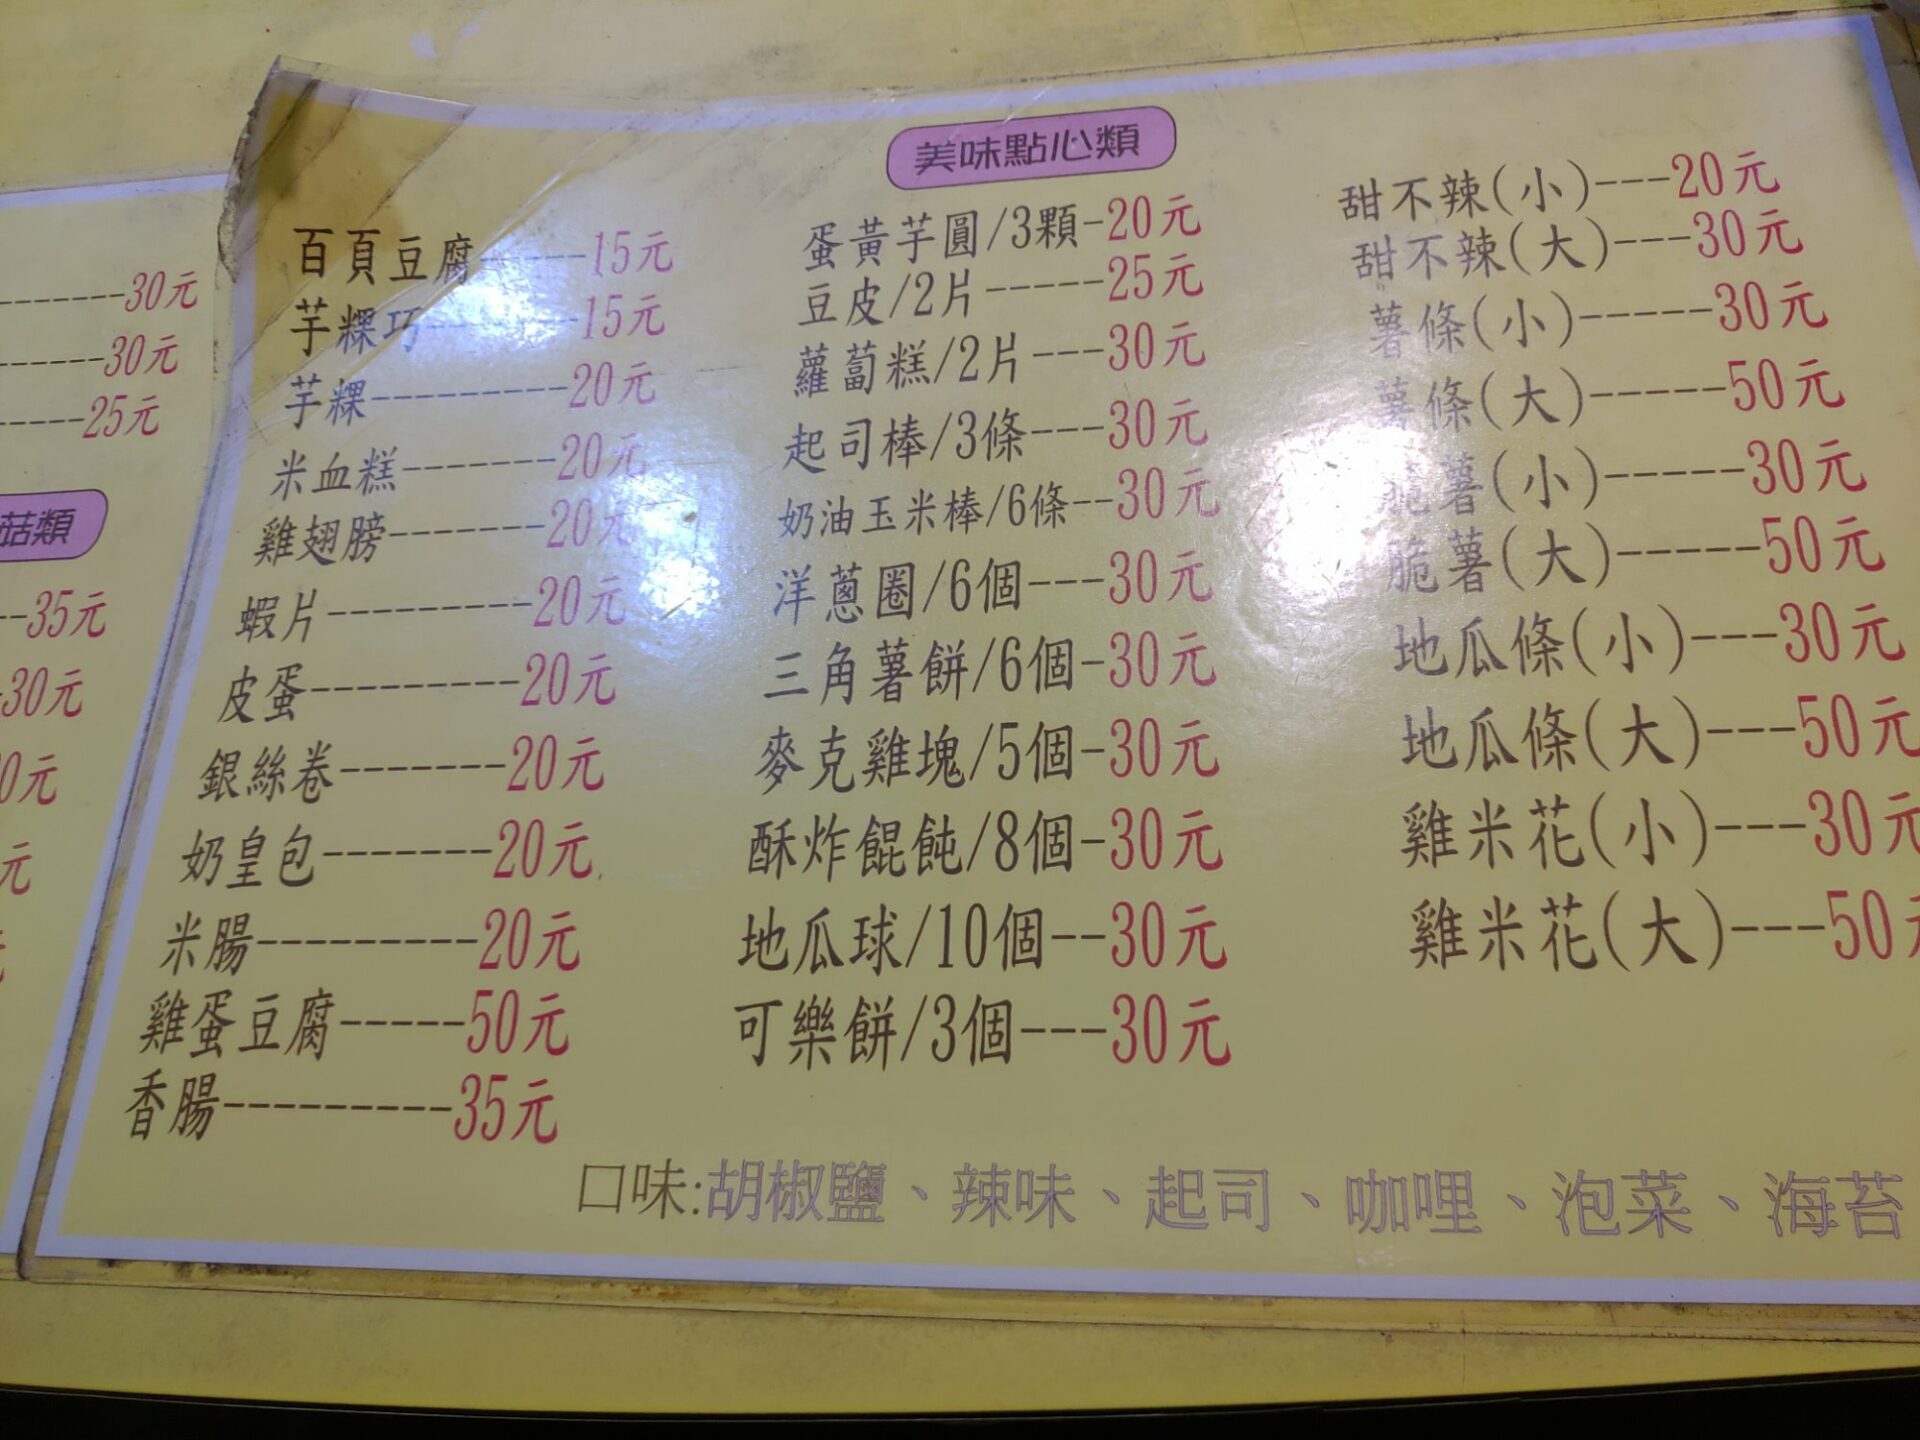 30元
30元
25元
菇類
35元
30元
0元
元
美味點心類
百頁豆腐-----15元
芋粿巧------15元
芋粿---------20元
米血糕-------20元
雞翅膀-------20元
蝦片---------20元
皮蛋---------20元
銀絲卷-------20元
奶皇包-------20元
米腸---------20元
雞蛋豆腐-----50元
香腸---------35元
蛋黃芋圓/3顆-20元
豆皮/2片-----25元
蘿蔔糕/2片---30元
起司棒/3條---30元
奶油玉米棒/6條--30元
洋蔥圈/6個---30元
三角薯餅/6個-30元
麥克雞塊/5個-30元
酥炸餛飩/8個-30元
地瓜球/10個--30元
可樂餅/3個---30元
甜不辣(小)---20元
甜不辣(大)---30元
薯條(小)-----30元
薯條(大)-----50元
脆薯(小)-----30元
脆薯(大)-----50元
地瓜條(小)---30元
地瓜條(大)---50元
雞米花(小)---30元
雞米花(大)---50元
口味:胡椒鹽、辣味、起司、咖哩、泡菜、海苔